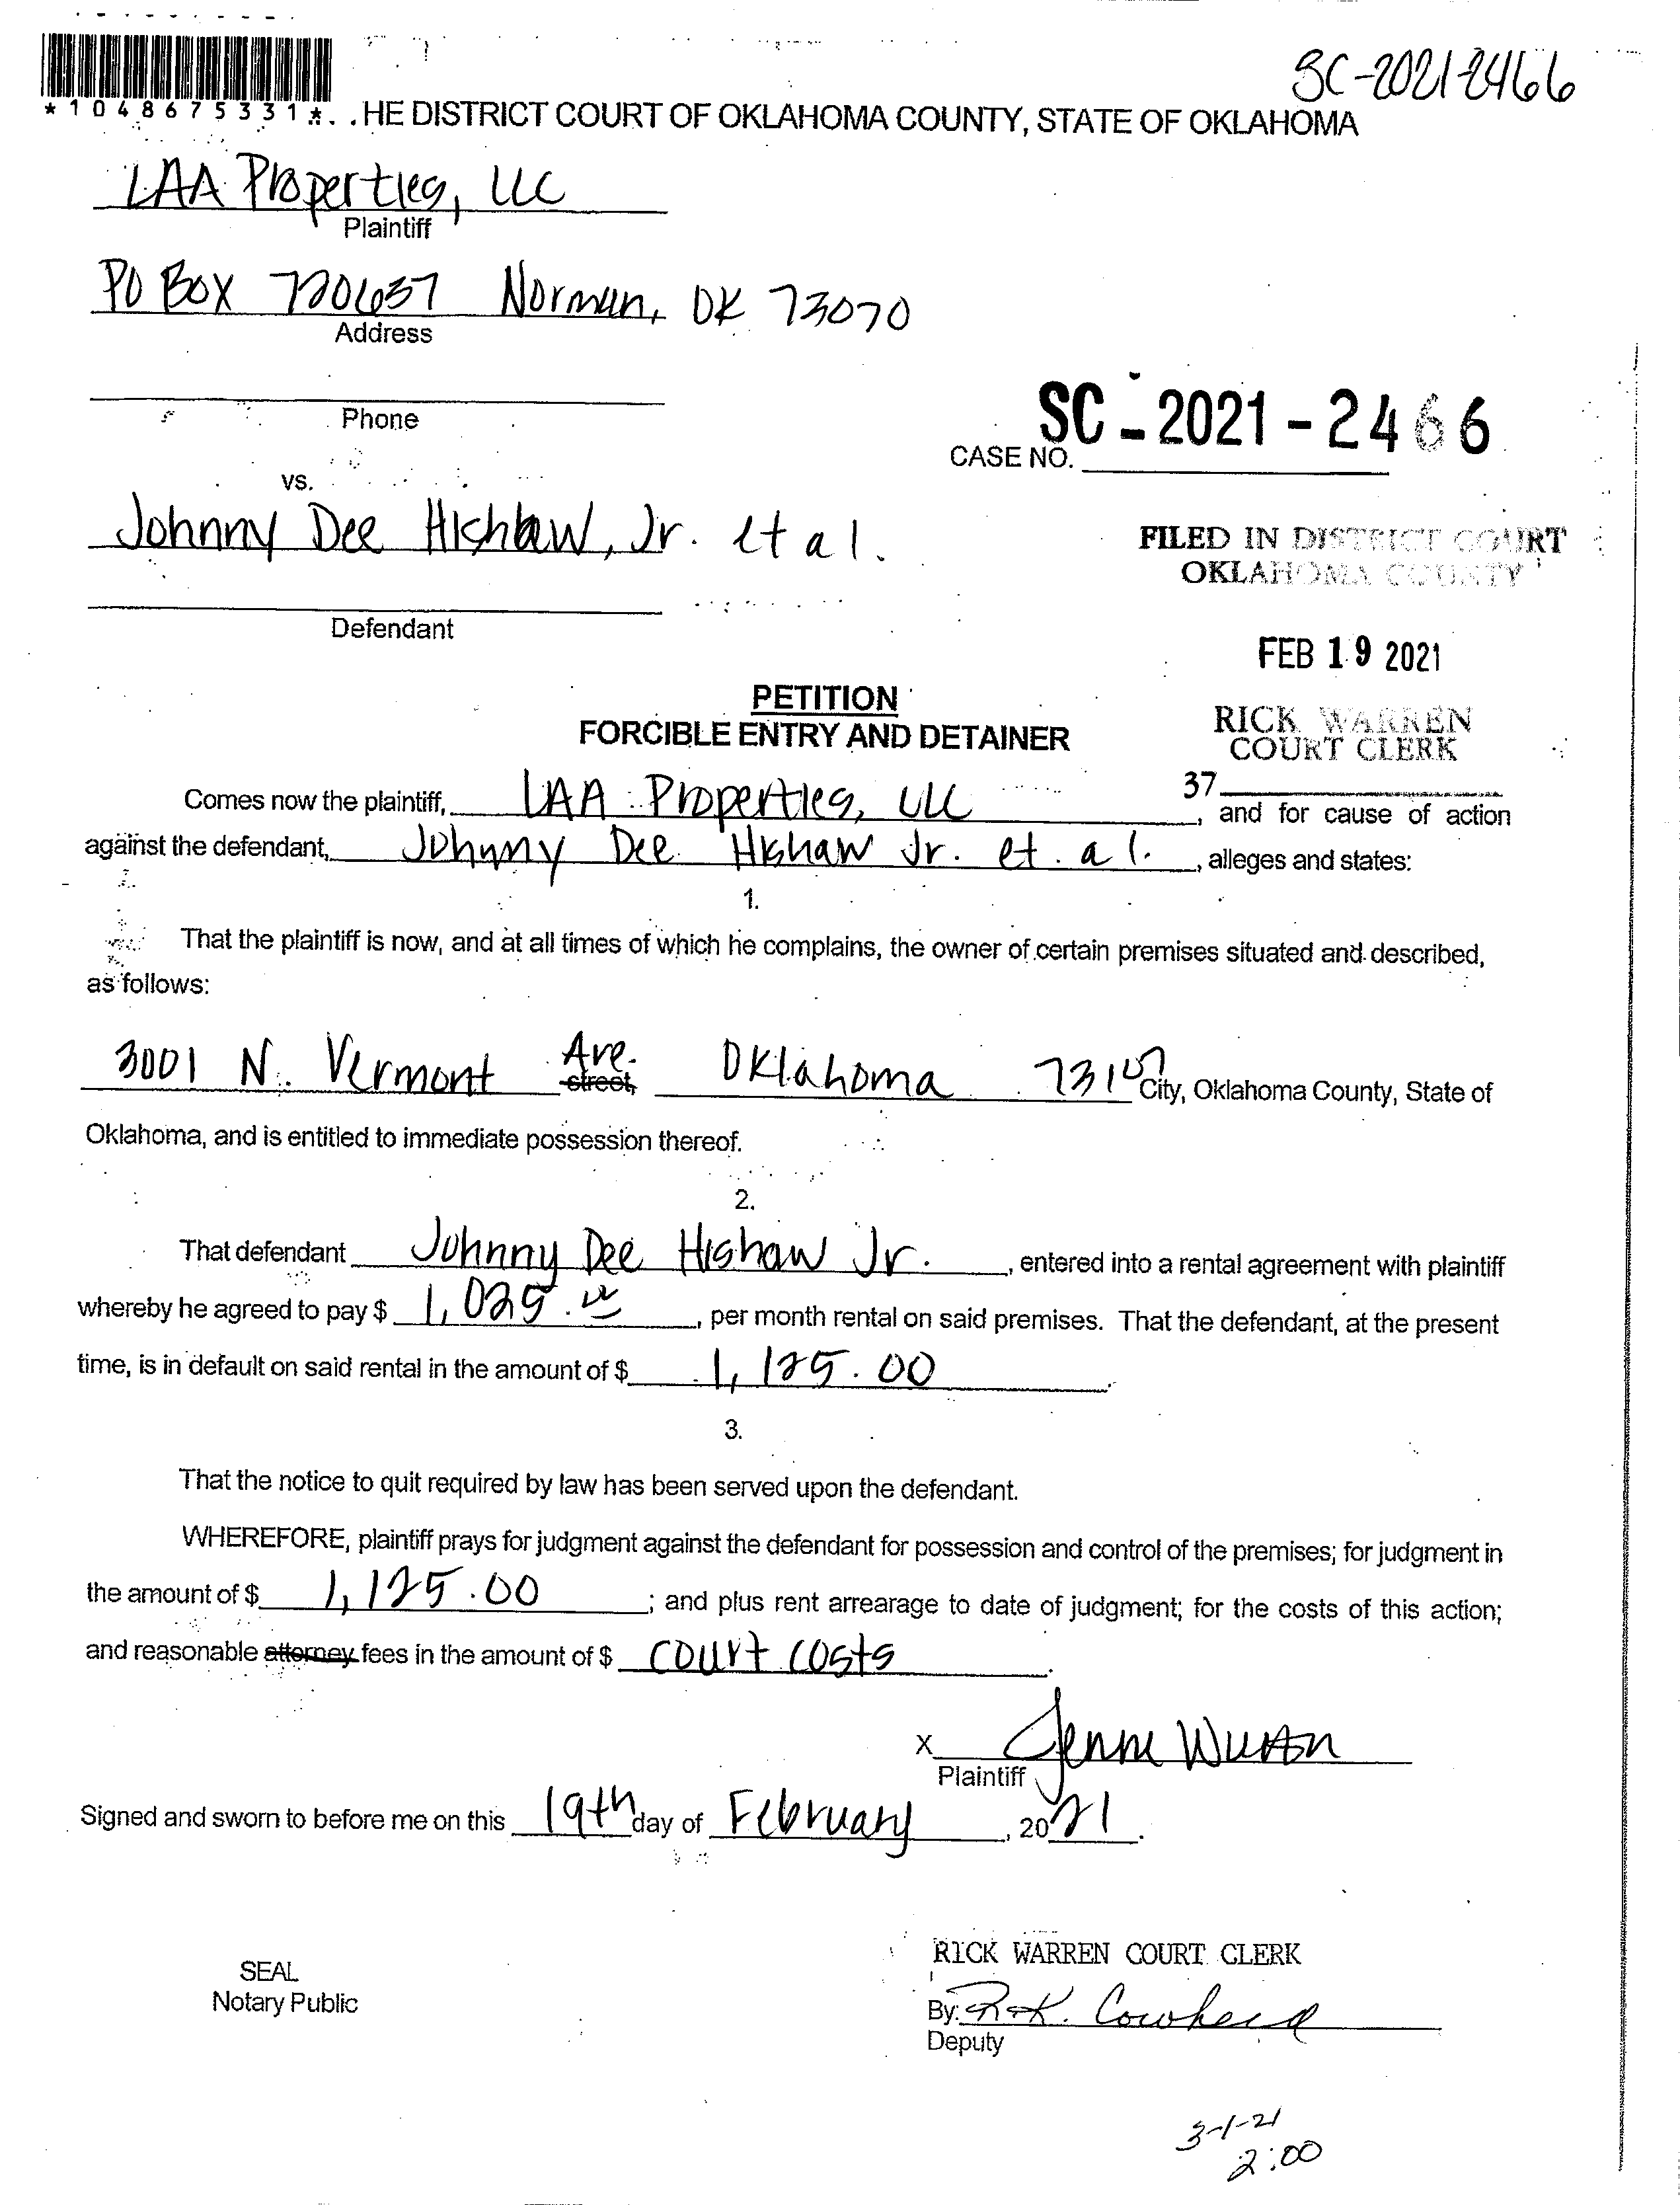 SC-2021-2466
*1048675331*. .HE DISTRICT COURT OF OKLAHOMA COUNTY, STATE OF OKLAHOMA
LAA Properties, LLC
Plaintiff
PO Box 720637 Norman, OK 73070
Address
Phone
SC-2021-2466
CASE NO.
vs.
Johnny Dee Hishaw, Jr. et al.
FILED IN DISTRICT COURT
OKLAHOMA COUNTY
Defendant
FEB 19 2021
PETITION
FORCIBLE ENTRY AND DETAINER
RICK WARREN
COURT CLERK
37
Comes now the plaintiff, LAA Properties, LLC, and for cause of action
against the defendant, Johnny Dee Hishaw Jr. et. al., alleges and states:
1.
That the plaintiff is now, and at all times of which he complains, the owner of certain premises situated and described,
as follows:
3001 N. Vermont Ave. street, Oklahoma 73107 City, Oklahoma County, State of
Oklahoma, and is entitled to immediate possession thereof.
2.
That defendant Johnny Dee Hishaw Jr., entered into a rental agreement with plaintiff
whereby he agreed to pay $ 1,025.00, per month rental on said premises. That the defendant, at the present
time, is in default on said rental in the amount of $ 1,125.00.
3.
That the notice to quit required by law has been served upon the defendant.
WHEREFORE, plaintiff prays for judgment against the defendant for possession and control of the premises; for judgment in
the amount of $ 1,125.00; and plus rent arrearage to date of judgment; for the costs of this action;
and reasonable attorney fees in the amount of $ court costs.
X
Plaintiff
Signed and sworn to before me on this 19th day of February, 2021.
RICK WARREN COURT CLERK
SEAL
Notary Public
By: R.K. Cowherd
Deputy
3-1-21
2:00